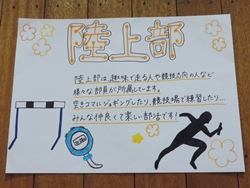 陸上部
陸上部は、趣味で走る人や競技志向の人など
様々な部員が所属しています。
空きコマにジョギングしたり、競技場で練習したり…
みんな仲良くて楽しい部活です!